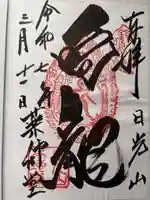 奉拝
日光山
鳴龍
令和七年
三月十一日
薬師堂